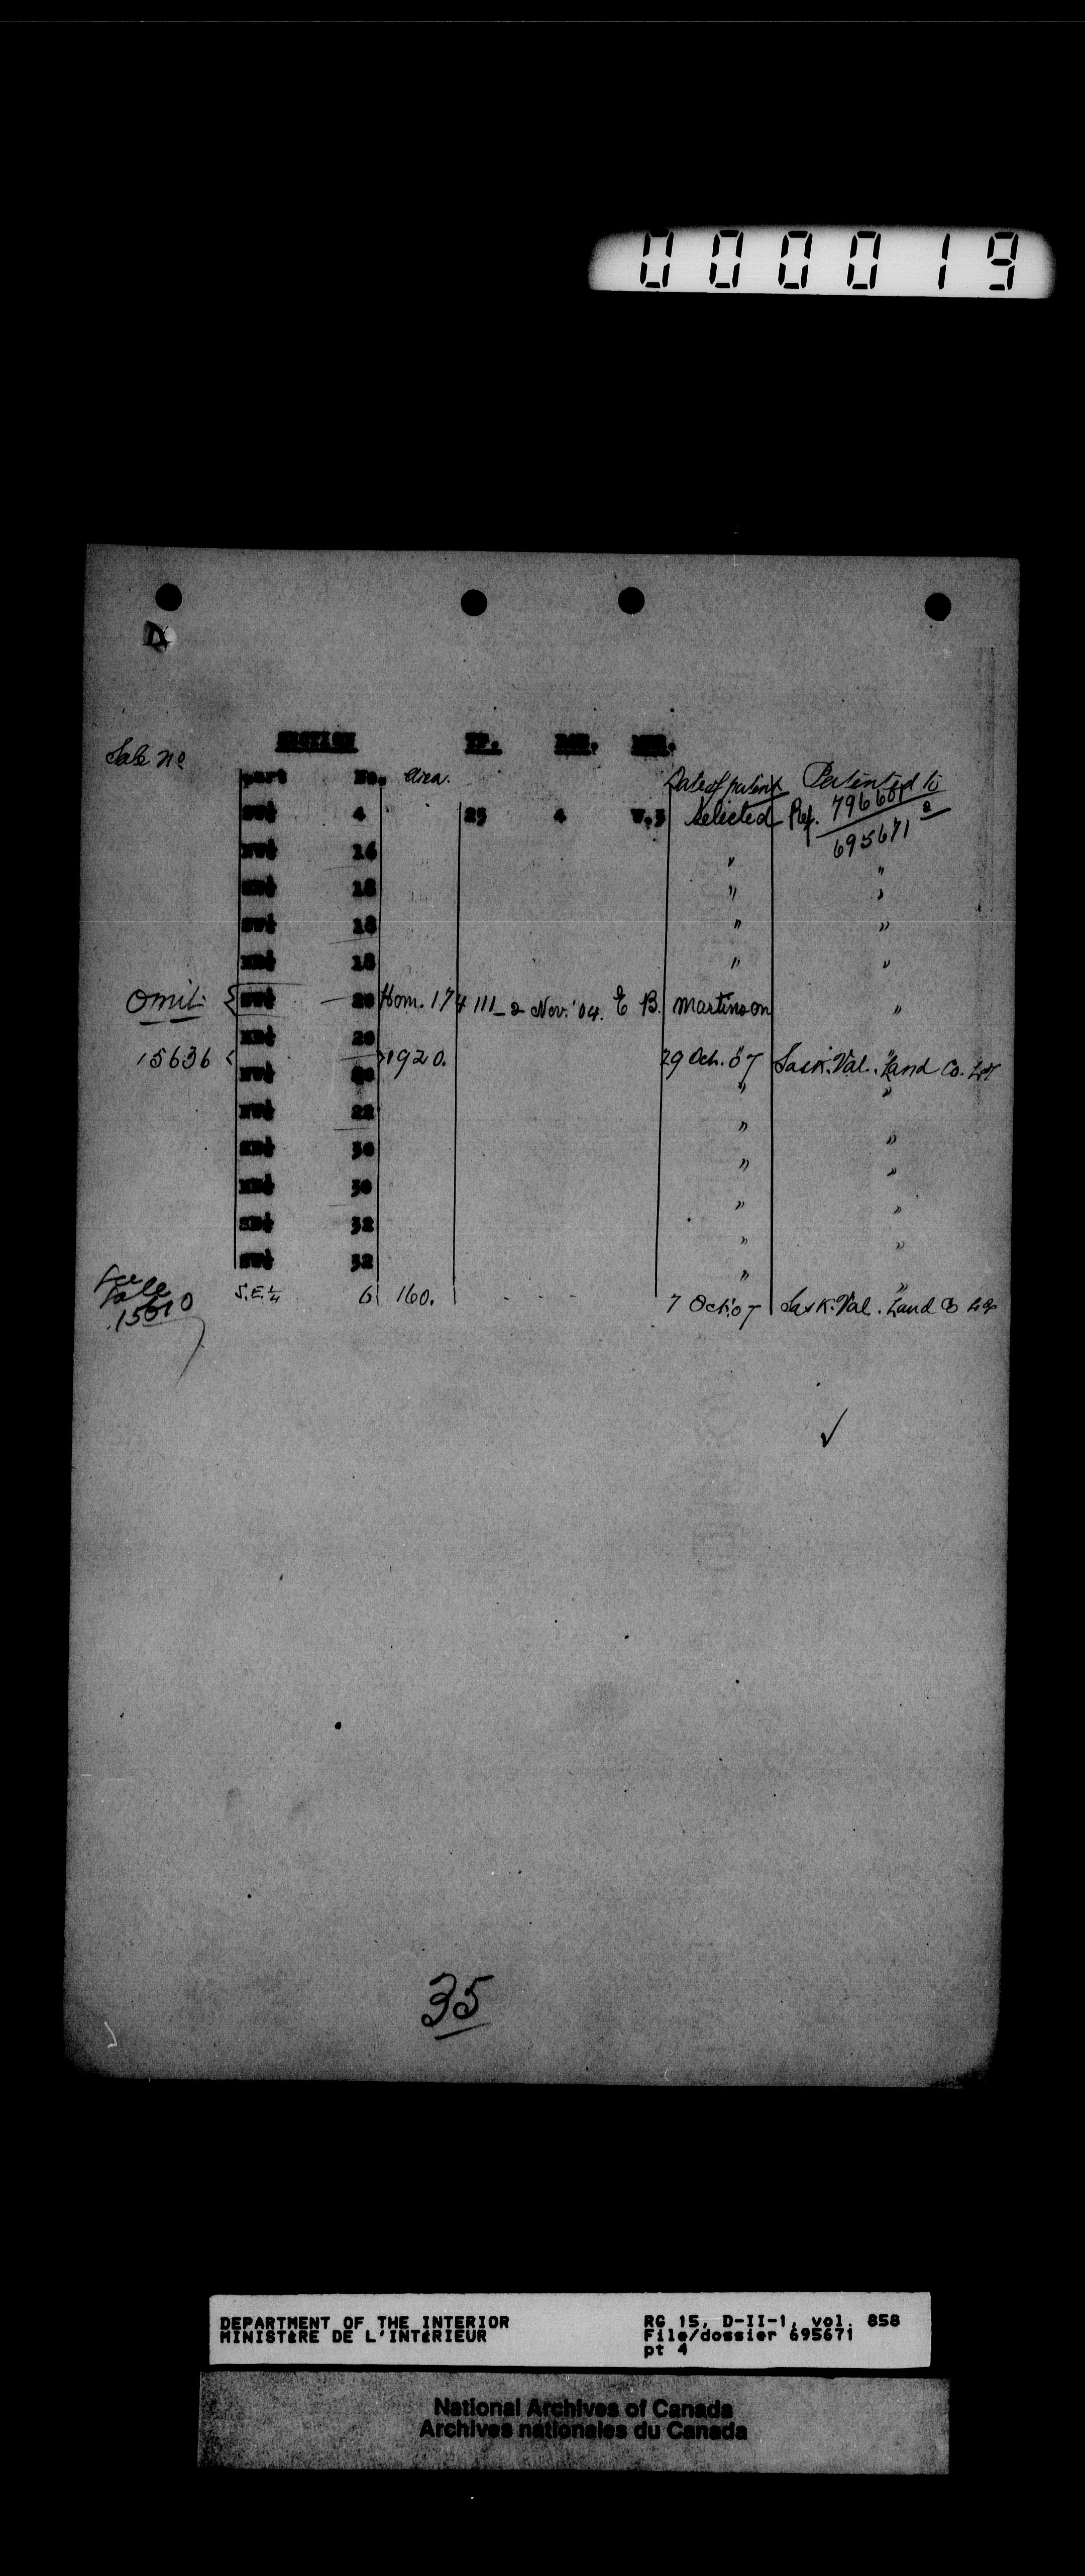 000019
D
SECTION TP. RGE. MER.
Sale no
part No. Area. Date of patent Patented to
SW¼ 4 25 4 W.3 Selected Ref. 796607
695671
NW¼ 16 " "
18 " "
SW¼ 18 " "
NE¼ 18 " "
Omit { SW¼ 20 Hom. 174111 - 2 Nov. '04. E B. Martinson "
NE¼ 20
15636 < > 1920. 29 Oct. 07 Sask. Val. Land Co. Ltd
NW¼ 20 " "
NW¼ 22 " "
30 " "
NE¼ 30 " "
32 " "
SW¼ 32 " "
See Sale 15610 S.E.¼ 6 160. - - - 7 Oct. 07 Sask. Val. Land Co Ltd
✓
35
DEPARTMENT OF THE INTERIOR RG 15, D-II-1, vol. 858
MINISTÈRE DE L'INTÉRIEUR File/dossier 695671
pt 4
National Archives of Canada
Archives nationales du Canada